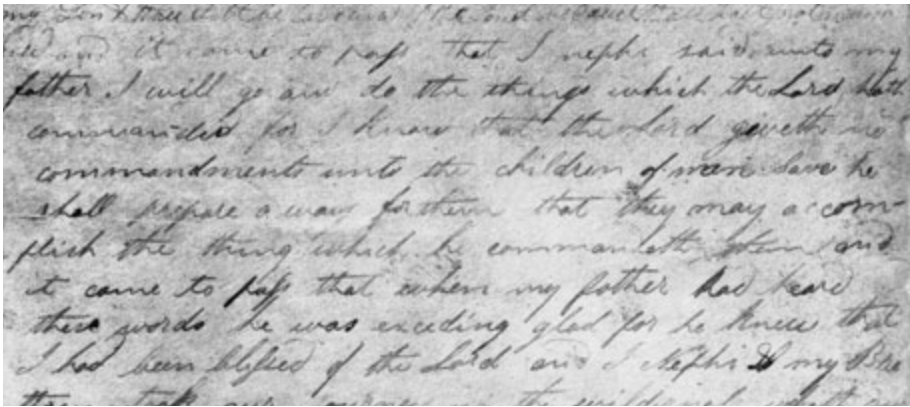 my Son & thou shalt be favoured of the Lord because thou hast not murm
and it came to pass that I nephi said unto my
father I will go and do the things which the Lord hath
commanded for I know that the Lord giveth no
commandments unto the children of men save he
shall prepare a way for them that they may accom-
plish the thing which he commandeth them and
it came to pass that when my father had heard
these words he was exceding glad for he knew that
I had been blessed of the Lord and I Nephi & my Bre
thren took our journey in the wilderness